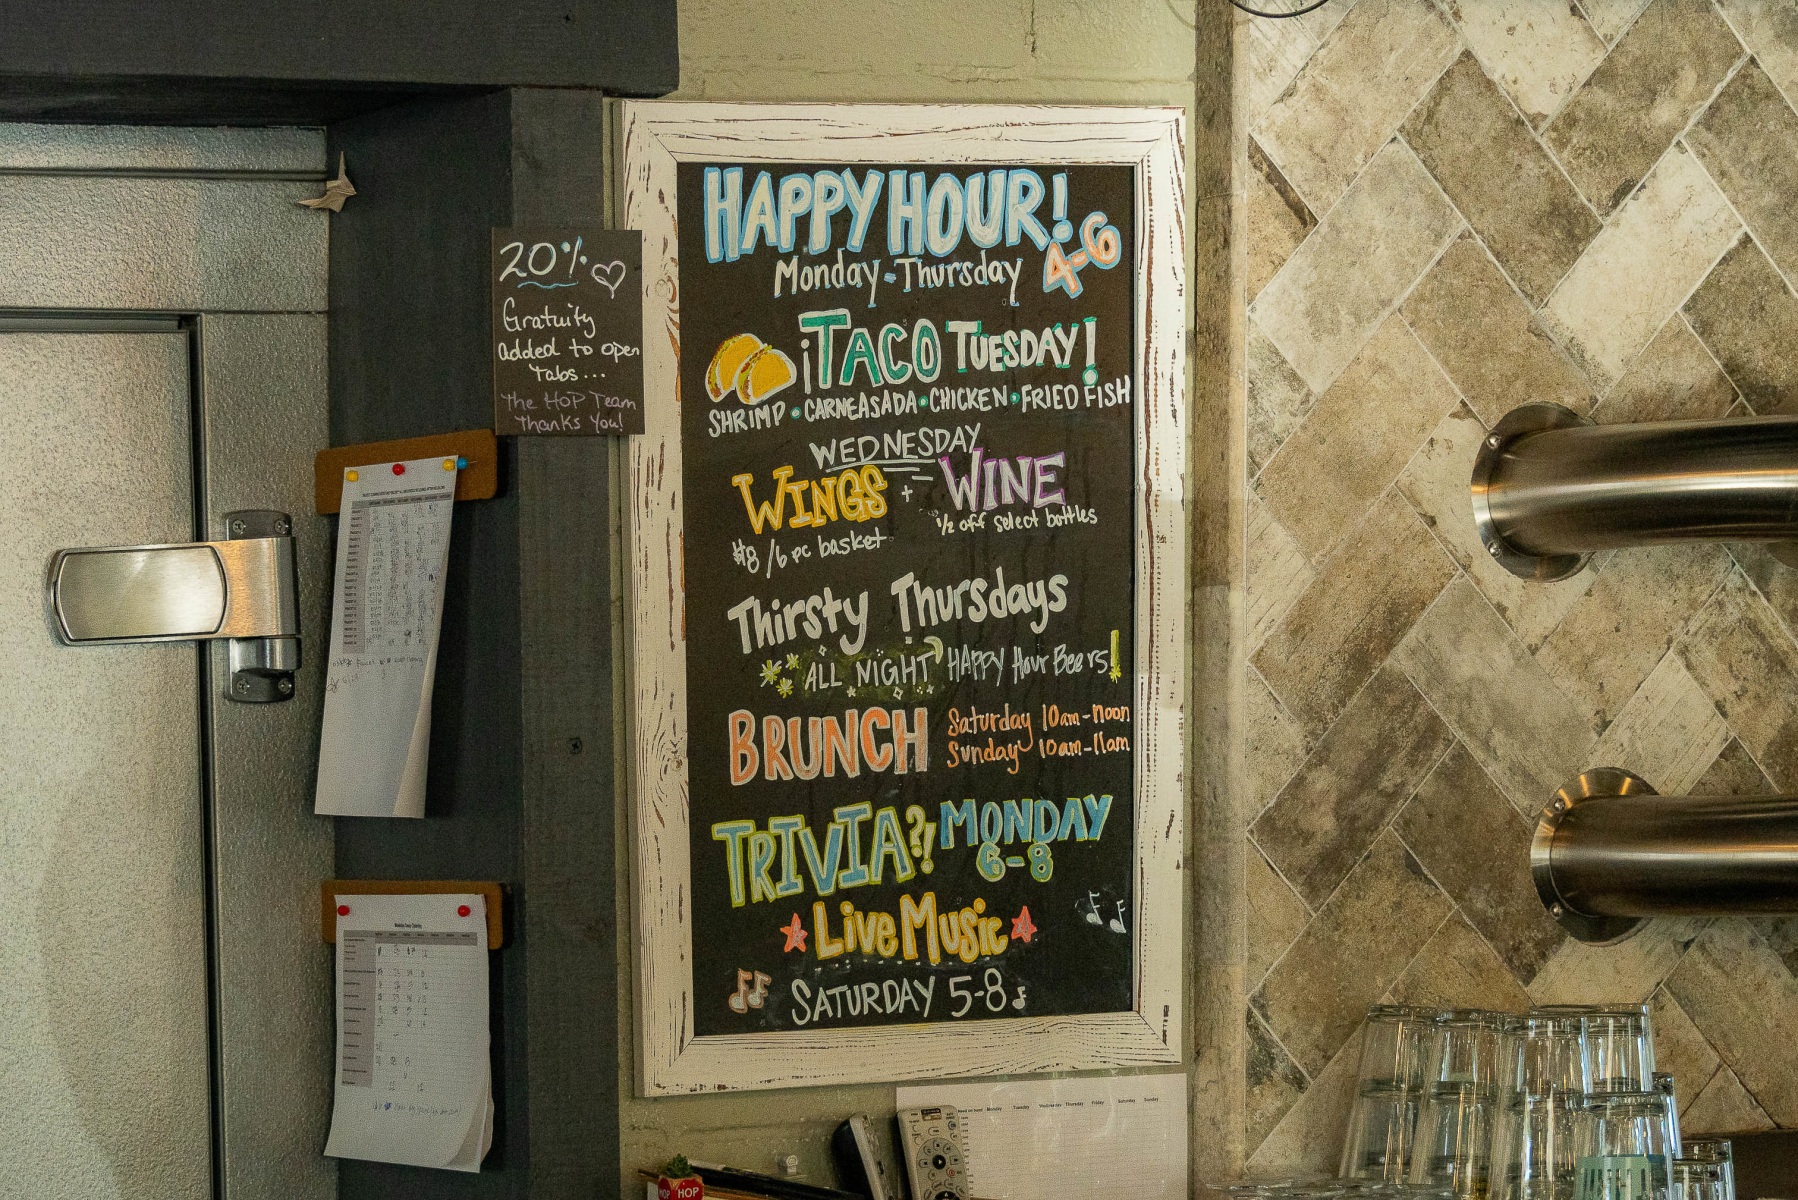 20%
Gratuity
added to open
Tabs...
The HOP Team
Thanks You!
HAPPY HOUR!
4-6
Monday-Thursday
¡TACO TUESDAY!
SHRIMP • CARNE ASADA • CHICKEN • FRIED FISH
WEDNESDAY
WINGS + WINE
$8/6pc basket
1/2 off select bottles
Thirsty Thursdays
ALL NIGHT HAPPY Hour Beers!
BRUNCH
Saturday 10am-noon
Sunday 10am-11am
TRIVIA?! MONDAY
6-8
Live Music
SATURDAY 5-8
Monday Tuesday Wednesday Thursday Friday Saturday Sunday
HOP HOP